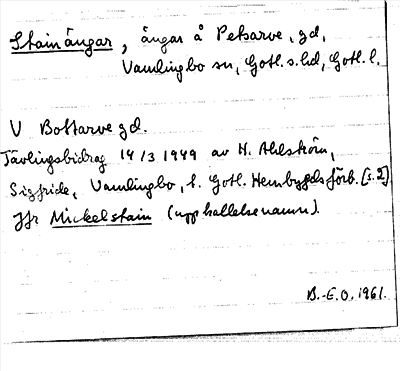 Stainängar, ängar å Petsarve, gd,
Vamlingbo sn, Gotl. s. hd, Gotl. l.
V Bottarve gd.
Tävlingsbidrag 14/3 1949 av H. Ahlström,
Sigfride, Vamlingbo, t. Gotl. Hembygdsförb. [s. 2]
Jfr Mickelstain (upphallelsenamn).
B.-E.O. 1961.